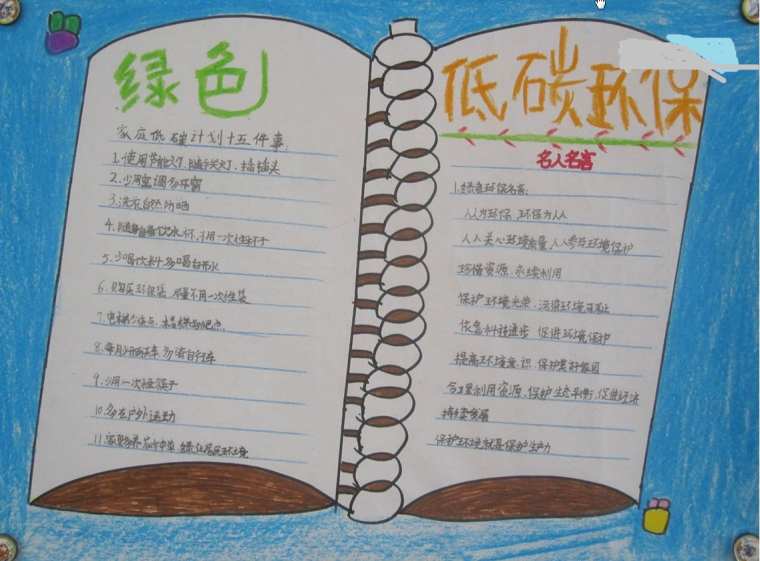 绿色
家庭低碳计划十五件事
1.使用节能灯,随手关灯、拔插头
2.少用空调多开窗
3.洗衣自然功晒
4.随身自备饮水杯,少用一次性杯子
5.少喝饮料多喝白开水
6.购买环保袋 尽量不用一次性袋
7.电梯少坐点、楼梯多爬点.
8.每月少开车 多骑自行车
9.少用一次性筷子
10.多在户外运动
11.家里多养花 绿化居民环境
低碳环保
名人名言
1.环保名言:
人人为环保,环保为人人
人人关心环境质量,人人参与环境保护
珍惜资源、永续利用
保护环境光荣、污染环境可耻
依靠科技进步 促进环境保护
提高环境意识 保护美好家园
合理利用资源、保护生态平衡,促进经济
持续发展
保护环境就是保护生产力